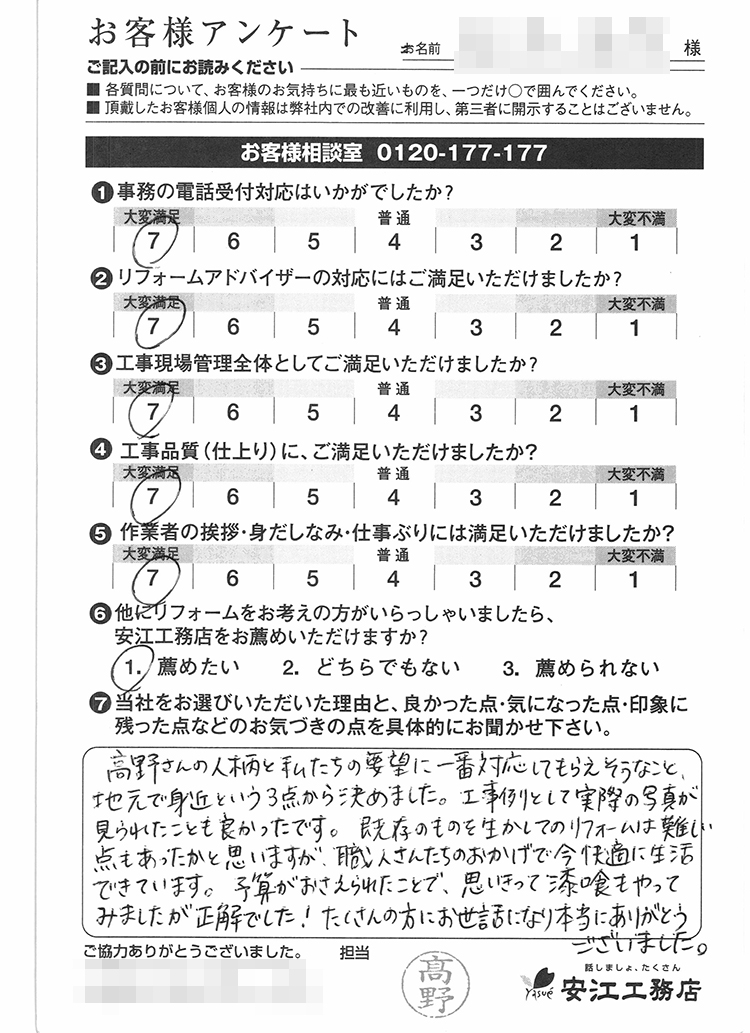 お客様アンケート
お名前 様
ご記入の前にお読みください
■ 各質問について、お客様のお気持ちに最も近いものを、一つだけ○で囲んでください。
■ 頂戴したお客様個人の情報は弊社内での改善に利用し、第三者に開示することはございません。
お客様相談室 0120-177-177
❶事務の電話受付対応はいかがでしたか?
大変満足 普通 大変不満
7 6 5 4 3 2 1
❷リフォームアドバイザーの対応にはご満足いただけましたか?
大変満足 普通 大変不満
7 6 5 4 3 2 1
❸工事現場管理全体としてご満足いただけましたか?
大変満足 普通 大変不満
7 6 5 4 3 2 1
❹工事品質(仕上り)に、ご満足いただけましたか?
大変満足 普通 大変不満
7 6 5 4 3 2 1
❺作業者の挨拶・身だしなみ・仕事ぶりには満足いただけましたか?
大変満足 普通 大変不満
7 6 5 4 3 2 1
❻他にリフォームをお考えの方がいらっしゃいましたら、
安江工務店をお薦めいただけますか?
1. 薦めたい 2. どちらでもない 3. 薦められない
❼当社をお選びいただいた理由と、良かった点・気になった点・印象に
残った点などのお気づきの点を具体的にお聞かせ下さい。
高野さんの人柄と私たちの要望に一番対応してもらえそうなこと、
地元で身近という3点から決めました。工事例として実際の写真が
見られたことも良かったです。既存のものを生かしてのリフォームは難しい
点もあったかと思いますが、職人さんたちのおかげで今快適に生活
できています。予算がおさえられたことで、思いきって漆喰もやって
みましたが正解でした!たくさんの方にお世話になり本当にありがとう
ございました。
ご協力ありがとうございました。 担当
高野
話しましょ、たくさん
Yasué 安江工務店